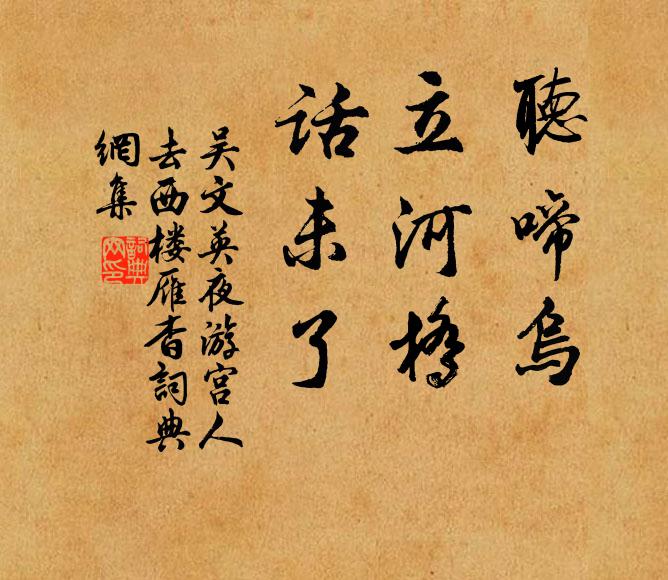 聽啼烏
立河橋
话未了
吴文英夜游宫人
去西楼雁杳詞典
網集
詞典網印